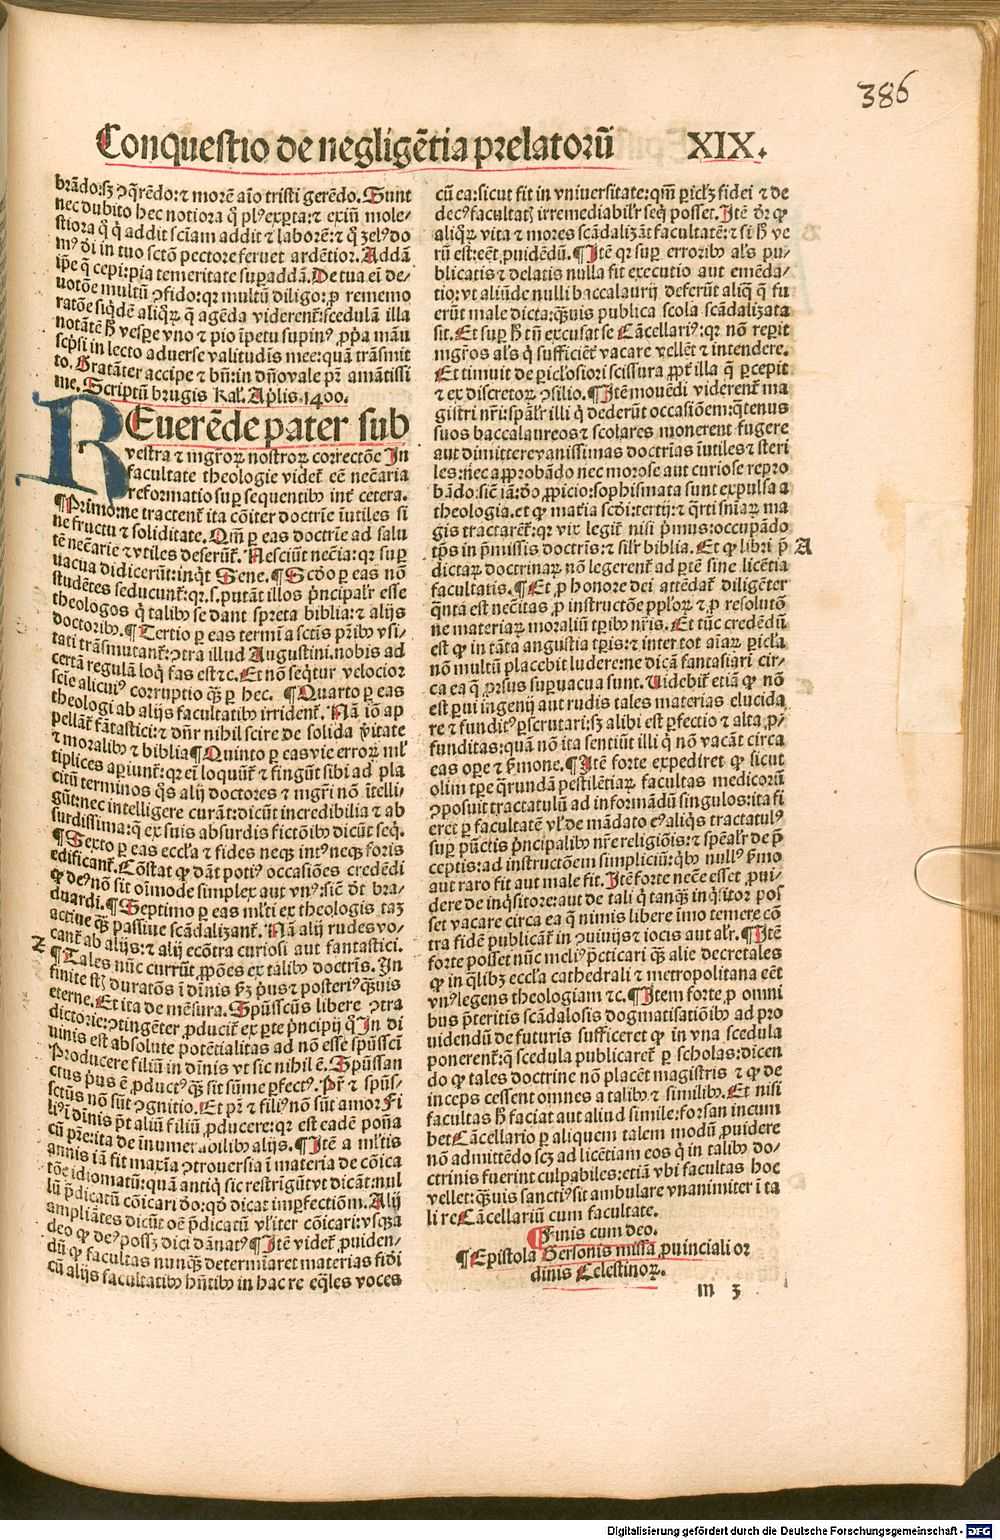 386
Conquestio de negligētia prelatorū XIX.
brādo:sꝫ ꝯq̄rēdo:⁊ morē aīo tristi gerēdo. Sunt
nec dubito hec notiora q̄ plꝰ exp̱ta:⁊ exiīt mole⸗
stiora q̄ q̇ addit sciam addit ⁊ laborē:⁊ q̄ zelꝰ do
mꝰ di in tuo sctō pectore feruet ardētior. Addā
ip̄e q̄ cepi:pia temeritate suꝑaddā. De tua ei de⸗
uotōe multū ꝯfido:qꝛ multū diligo:ꝓ rememo
ratōe siq̇dē aliqꝝ q̄ agēda viderent᷑:scedulā illa
notātē hꝰ vesꝑe vno ⁊ pio īpetu supinꝰ ꝓpa māu
scpsi in lecto aduerse valitudīs mee:quā trāsmit
to. Gratāter accipe ⁊ bn̄:in dn̄o vale pr̄ amātissi
me. Scriptū brugis kal̓. Aplis .1400.
REuerēde pater sub
vestra ⁊ mgr̄oꝝ nostroꝝ correctōe In
facultate theologie videt᷑ eē necāria
reformatio suꝑ sequentibꝰ int᷑ cetera.
¶Primo:ne tractent᷑ ita cōiter doctrīe iutiles si
ne fructu ⁊ soliditate. Qm̄ ꝑ eas doctrīe ad salu
tē necārie ⁊ vtiles deserūt᷑. Nesciūt necīa:qꝛ suꝑ
vacua didicerūt:inq̇t Sene. ¶Scdo ꝑ eas nō
studētes seducunt᷑:qꝛ.s.putāt illos p̄ncipalr̄ esse
theologos q̇ talibꝰ se dant spreta biblia:⁊ alijs
doctoribꝰ. ¶Tertio ꝑ eas termī a sctīs pr̄ibꝰ vsi⸗
tati trāsmutant᷑:ꝯtra illud Augustini.nobis ad
certā regulā loq̇ fas est ⁊c. Et nō seq̇tur velocior
scīe alicuiꝰ corruptio q̄ꝫ ꝑ hec. ¶Quarto ꝑ eas
theologi ab alijs facultatibꝰ irrident᷑. Nā iō ap
pellāt᷑ fātastici:⁊ dn̄r nihil scire de solida v̓itate
⁊ moralibꝰ ⁊ biblia ¶Quinto ꝑ eas vie erroꝝ ml̓
tiplices aꝑiunt᷑:qꝛ ei loquūt᷑ ⁊ fingūt sibi ad pla
citū terminos q̄s alij doctores ⁊ mgr̄i nō ītelli⸗
gūt:nec intelligere curāt:dicūt incredibilia ⁊ ab
surdissima:q̄ ex suis absurdis fictōibꝰ dicūt seq̇.
¶Sexto ꝑ eas eccl̓a ⁊ fides neqꝫ intꝰ neqꝫ foris
edificant᷑. Cōstat ꝙ dāt potiꝰ occasiōes credēdi
ꝙ deꝰ nō sit oīmode simplex aut vnꝰ:sic̄ dt̄ bra⸗
duardi. ¶Septimo ꝑ eas ml̓ti ex theologis taꝫ
actiue q̄ꝫ passiue scādalizant᷑. Nā alij rudes vo⸗
cant᷑ ab alijs:⁊ alij ecōtra curiosi aut fantastici.
Z
¶Tales nūc currūt ꝓpōes ex talibꝰ doctrīs. In
eterne. Et ita de mēsura. Spūsscūs libere ꝯtra
dictorie:ꝯtingēter ꝓducit᷑ ex ꝑte p̄ncipij q̇ In di
uinis est absolute potētialitas ad nō esse spūssci
Producere filiū in dīnis vt sic nihil ē. Spūssan
ctus pꝰus ē ꝓductꝰ q̄ꝫ sit sūme ꝑfectꝰ. Pr̄ ⁊ spūs⸗
sctūs nō sūt ꝯgnitio. Et pr̄ ⁊ filiꝰ nō sūt amor Fi
liꝰ ī dīnis p̄t aliū filiū ꝓducere:qꝛ est eadē potīa
cū pr̄e:ita de inumerabilibꝰ alijs. ¶Itē a ml̓tis
annis iā fit maxīa ꝯtrouersia ī materia de cōica
tōe idiomatū:quā antiq̇ sic restrīgūt vt dicāt:nul
lū p̄dicatū cōicari dō:qd̓ dicat imꝑfectiōm. Alij
ampliātes dicūt oē p̄dicatū vl̓iter cōicari:vsqꝫ a
deo ꝙ deꝰ possꝫ dici dānatꝰ ¶Itē videt᷑ ꝓuiden⸗
dū ꝙ facultas nunq̄ꝫ determīaret materias fidei
cū alijs facultatibꝰ hn̄tibꝰ in hac re eq̄les voces
cū ea:sicut fit in vniuersitate:qm̄ ꝑicl̓ꝫ fidei ⁊ de
decꝰ facultatꝭ irremediabilr̄ seq̇ posset. Itē dr̄ ꝙ
aliqꝝ vita ⁊ mores scādalizāt facultatē:⁊ si hꝰ ve
rū est:eēt ꝓuidēdū. ¶Itē qꝛ suꝑ erroribꝰ al̓s pu⸗
blicatis ⁊ delatis nulla fit executio aut emēda⸗
tio:vt aliūde nulli baccalaurij deferūt aliq̄ q̄ fu
erūt male dicta:q̄ꝫuis publica scola scādalizata
sit. Et suꝑ hꝰ tn̄ excusat se Cācellariꝰ:qꝛ nō reꝑit
mgr̄os al̓s q̇ sufficiēt᷑ vacare vellēt ⁊ intendere.
Et timuit de ꝑicl̓osiori scissura ꝓpt᷑ illa q̄ ꝑcepit
⁊ ex discretoꝝ ꝯsilio. ¶Itē mouēdi viderent᷑ ma
gistri nr̄i:spāl̓r illi q̇ dederūt occasiōem:q̄tenus
suos baccalaureos ⁊ scolares monerent fugere
aut dimittere vanissimas doctrīas iutiles ⁊ steri
les:nec approbādo nec morose aut curiose repro
bādo:sic̄ iā:dō ꝓpicio:sophismata sunt expulsa a
theologia.et ꝙ matīa scdi:tertij:⁊ q̄rti snīaꝝ ma
gis tractarēt᷑:qꝛ vix legit᷑ nisi p̄mus:occupādo
tp̄s in p̄missis doctrīs:⁊ sil̓r biblia. Et ꝙ libri p̄ A
dictaꝝ doctrinaꝝ nō legerent᷑ ad ꝑtē sine licētia
facultatis. ¶Et ꝓ honore dei attēdat᷑ diligēter
q̄nta est necītas ꝓ instructōe ppl̓oꝝ ⁊ ꝓ resolutō
ne materiaꝝ moraliū tp̄ibꝰ nr̄is. Et tūc credēdū
est ꝙ in tāta angustia tp̄is:⁊ inter tot aīaꝝ ꝑicl̓a
nō multū placebit ludere:ne dicā fantasiari cir⸗
ca ea q̄ ꝓrsus suꝑuacua sunt. Videbit᷑ etiā ꝙ nō
est ꝑui ingenij aut rudis tales materias elucida
re ⁊ funditꝰ ꝑscrutari:sꝫ alibi est ꝑfectio ⁊ alta ꝓ⸗
funditas:quā nō ita sentiūt illi q̇ nō vacāt circa
eas oꝑe ⁊ s̓mone. ¶Itē forte expediret ꝙ sicut
olim tꝑe q̄rundā pestilētiaꝝ facultas medicorū
ꝯposuit tractatulū ad informādū singulos:ita fi
eret ꝑ facultatē vl̓ de mādato eꝰ aliq̇s tractatulꝰ
suꝑ pūctis p̄ncipalibꝰ nr̄e religiōis:⁊ spēal̓r de p̄
ceptis:ad instructōem simpliciū:q̇bꝰ nullꝰ s̓mo
aut raro fit aut male fit. Itē forte necē esset ꝓui⸗
dere de inq̇sitore:aut de tali q̇ tanq̄ꝫ inq̇sitor pos
set vacare circa ea q̄ nimis libere īmo temere cō
tra fidē publicāt᷑ in ꝯuiuijs ⁊ iocis aut al̓r. ¶Itē
forte posset nūc meliꝰ p̄cticari q̄ꝫ alie decretales
ꝙ in q̇libꝫ eccl̓a cathedrali ⁊ metropolitana eēt
vnꝰ legens theologiam ⁊c. ¶Item forte ꝓ omni
bus p̄teritis scādalosis dogmatisatiōibꝰ ad pro
uidendū de futuris sufficeret ꝙ in vna scedula
ponerent᷑:q̄ scedula publicaret᷑ ꝑ scholas:dicen
do ꝙ tales doctrine nō placēt magistris ⁊ ꝙ de
inceps cessent omnes a talibꝰ ⁊ similibꝰ. Et nisi
facultas hꝰ faciat aut aliud simile:forsan incum
bet Cācellario ꝑ aliquem talem modū ꝓuidere
nō admittēdo scꝫ ad licētiam eos q̇ in talibꝰ do⸗
ctrinis fuerint culpabiles:etiā vbi facultas hoc
vellet:q̄ꝫuis sanctiꝰ sit ambulare vnanimiter ī ta
li re Cācellariū cum facultate.
¶Finis cum deo.
¶Epistola Gersonis missa ꝓuinciali or
dinis Celestinoꝝ.
m 3
Digitalisierung gefördert durch die Deutsche Forschungsgemeinschaft - DFG